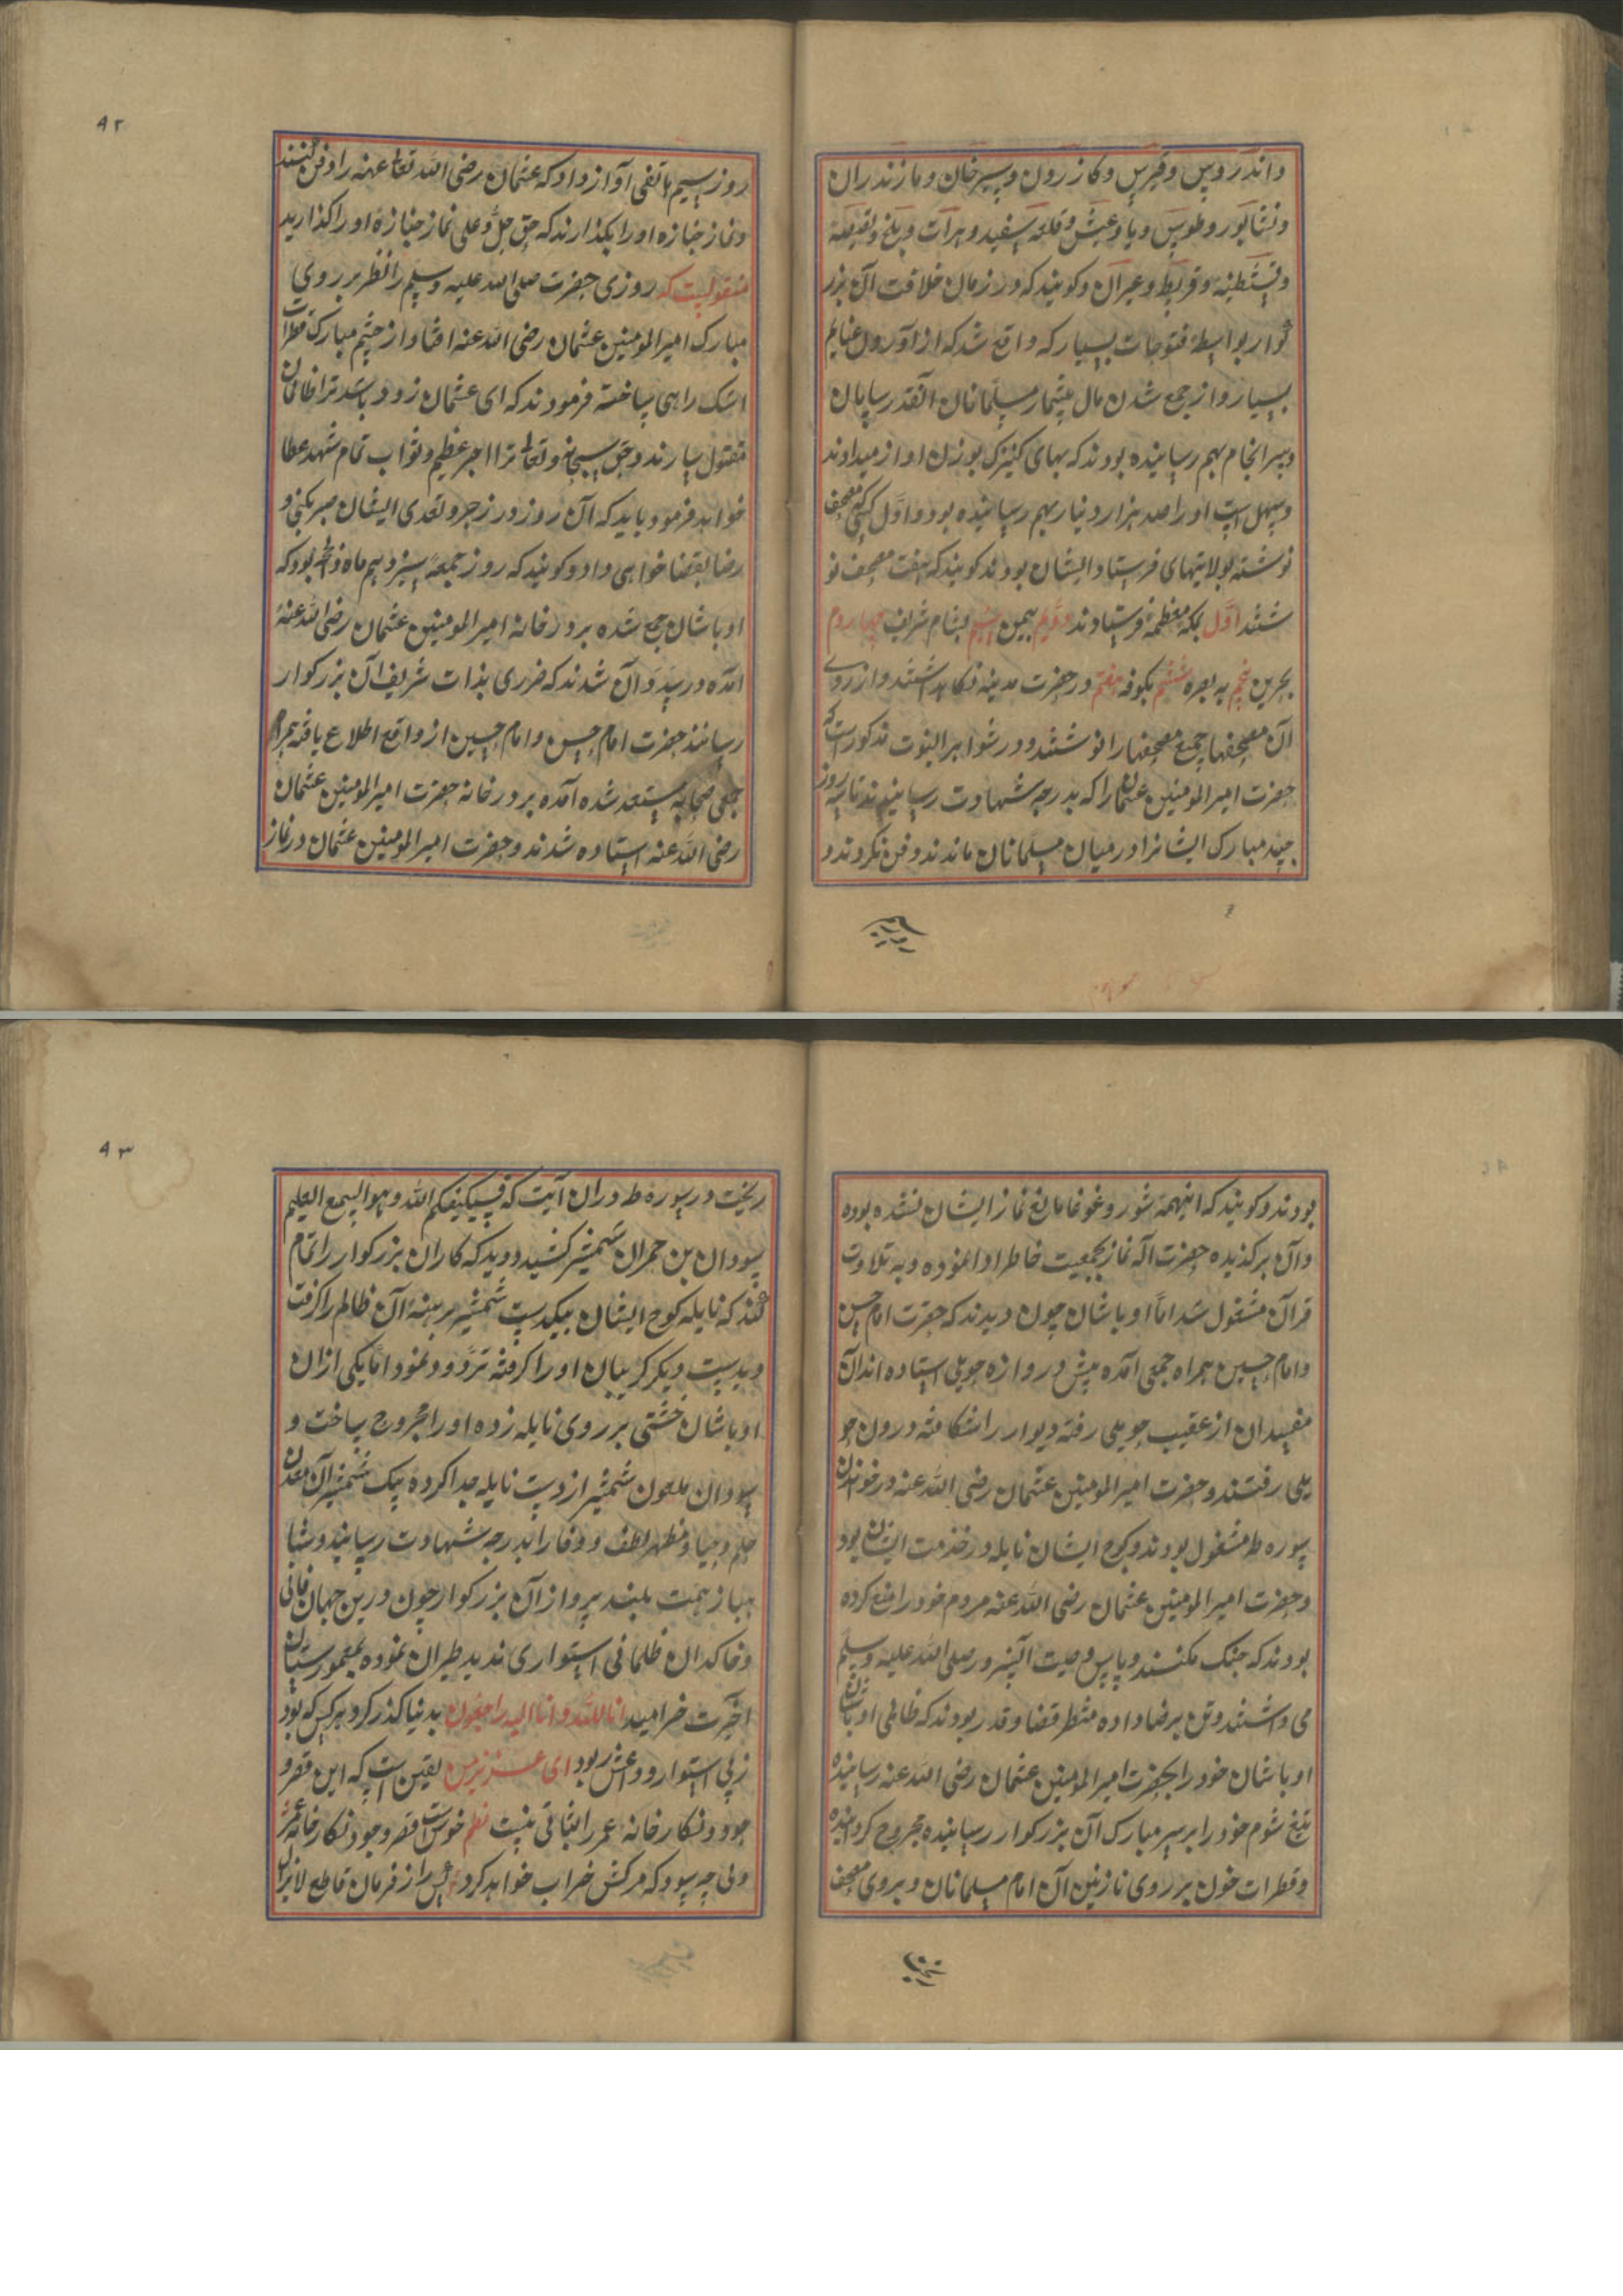 واندروپس وقبرس وکازرون وسیرخان ومازندران
ونشابور وطوس وبادغیش وقلعه سفید وهرات وبلخ
وقسطنیه وقربط وعبران وکویندکه در زمان خلافت آن بزر
کوار بواسطهٔ فتوحات بسیار که واقع شد که از آوردن غنایم
بسیار واز جمع شدن مال بیشمار مسلمانان آنقدر سامان
وسرانجام بهم رسانیده بودند که بهای کنیزک بوزن او از میدادند
وبهل اسپ او را صد هزار دینار بهم رسانیده بود واول کسی که مصحف
نوشته بولایتهای فرستاد ایشان بودند کویند که هفت مصحف نو
شتند اول بمکه معظمه فرستادند دویم بیمن سیم بشام شریف چهاردم
بحرین پنجم به بصره ششم بکوفه هفتم در حضرت مدینه نکاهداشتند واز روی
آن مصحفها جمیع مصحفها را نوشتند ودر شواهد النبوت مذکور است که
حضرت امیر المومنین عثمان را که بدرجه شهادت رسانیدند تا سه روز
جسد مبارک ایشانرا در میان مسلمانان ماندند دفن نکردند و
روز سیم هاتفی آواز داد که عثمان رضی الله تعالی عنه را دفن کنند
ونماز جنازه او را بکذارند که حق جل وعلی نماز جنازهٔ او را کذارید
منقولیست که روزی حضرت صلی الله علیه وسلم را نظر بر روی
مبارک امیر المومنین عثمان رضی الله عنه افتاد از چشم مبارک قطرات
اشک راهی ساخته فرمودند که ای عثمان زود باشد ترا ظالمان
مقتول سازند وحق سبحانه وتعالی ترا اجر عظیم وثواب تمام شهد عطا
خواهد فرمود باید که آن روز در زجر وتعدی ایشان صبر بکنی و
رضا بقضا خواهی داد وکویند که روز جمعه سیزدهم ماه ذی الحجه بود که
اوباشان جمع شده بر در خانه امیر المومنین عثمان رضی الله عنه
آمده در پی آن شدند که ضرری بذات شریف آن بزرکوار
رسانند حضرت امام حسن وامام حسین از واقع اطلاع یافته همراه
جمعی صحابه مستعد شده آمده بر در خانه حضرت امیر المومنین عثمان
رضی الله عنه استاده شدند وحضرت امیر المومنین عثمان در نماز
بودند وکویند که اینهمه شور وغوغا مانع نماز ایشان نشده بوده
وآن برکزیده حضرت اله نماز بجمعیت خاطر ادا نموده وبه تلاوت
قرآن مشغول شد اما اوباشان چون دیدند که حضرت امام حسن
وامام حسین همراه جمعی آمده پیش دروازه حویلی استاده اند آن
مفسدان از عقب حویلی رفته دیوار را شکافته درون حو
یلی رفتند وحضرت امیر المومنین عثمان رضی الله عنه در خواندن
سوره ط مشغول بودند وکوج ایشان نایله در خدمت ایشان بود
وحضرت امیر المومنین عثمان رضی الله عنه مردم خود را منع کرده
بودند که جنک مکنند وپاس وصیت آنسرور صلی الله علیه وسلم
می داشتند وتن برضا داده منتظر قضا وقدر بودند که ظالمی از
اوباشان خود را بحضرت امیر المومنین عثمان رضی الله عنه رسانیده
تیغ شوم خود را بر سر مبارک آن بزرکوار رسانیده مجروح کردانیده
وقطرات خون بر روی نازنین آن امام مسلمانان وبروی مصحف
ریخت در سوره ط در ان آیت که فسیکفیکهم الله وهو السمیع العلیم
سودان بن حمران شمشیر کشید ودوید که کار ان بزرکوار را تمام
کند که نایله کوج ایشان بیکدست شمشیر برهنهٔ آن ظالم را کرفت
وبدست دیکر کریبان او را کرفته تردد نمود اما یکی از ان
اوباشان خشتی بر روی نایله زده او را مجروح ساخت و
سودان ملعون شمشیر از دست نایله جدا کرده بیک شمشیر آن معدن
حلم وحیا ومظهر لطف ووفا را بدرجه شهادت رسانید وشا
هباز همت بلند پرواز آن بزرکوار چون درین جهان فانی
وخاکدان ظلمانی استواری ندید طیران نموده بمعمور ستان
آخرت خرامید انا لله وانا الیه راجعون بدنیا کذر کرد هر کس که بود
زپی استوار ودعش ربود ای عزیز من یقین است که این قصر و
جود ونکارخانه عمر را بنائی نیست نظم خوست قصر وجود ونکارخانه عمر
ولی چه سود که مرکش خراب خواهد کرد پس از فرمان قاطع لایزال